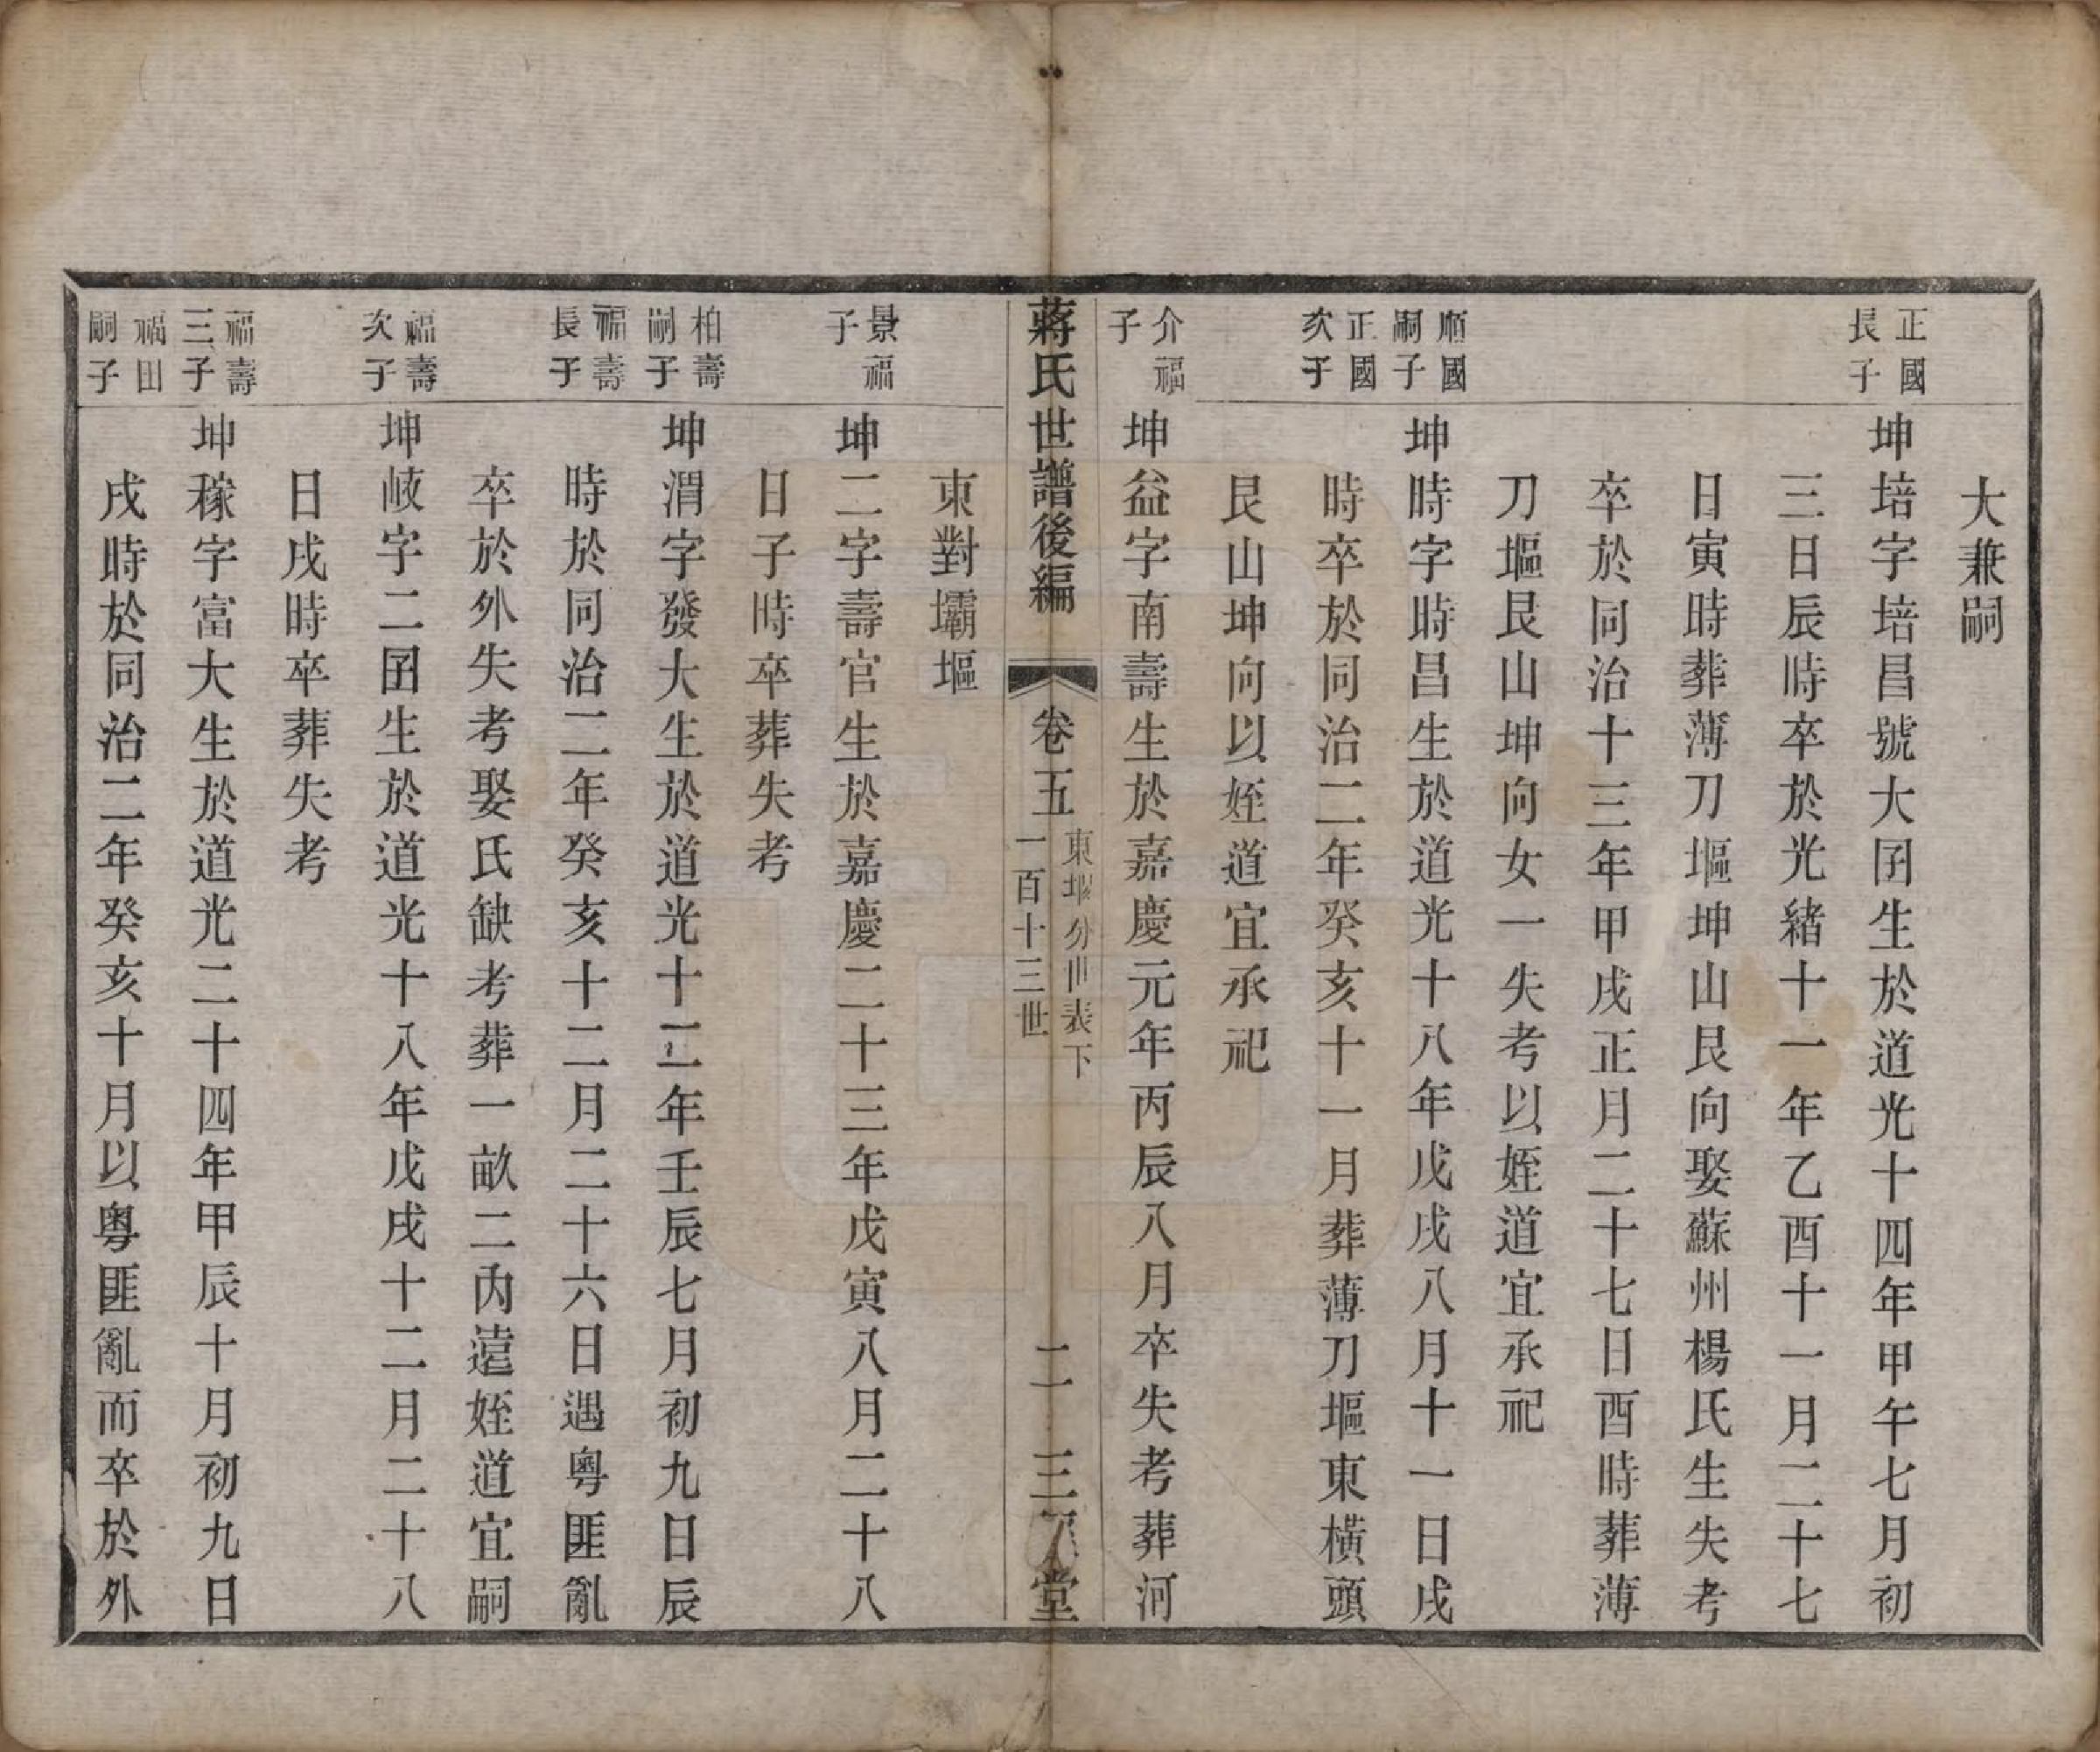 大兼嗣
正國長子
坤培字培昌號大囝生於道光十四年甲午七月初
三日辰時卒於光緒十一年乙酉十一月二十七
日寅時葬薄刀塸坤山艮向娶蘇州楊氏生失考
卒於同治十三年甲戌正月二十七日酉時葬薄
刀塸艮山坤向女一失考以姪道宜承祀
順國嗣子
坤時字時昌生於道光十八年戊戌八月十一日戌
正國次子
時卒於同治二年癸亥十一月葬薄刀塸東橫頭
艮山坤向以姪道宜承祀
介福子
坤益字南壽生於嘉慶元年丙辰八月卒失考葬河
蔣氏世譜後編
卷五
東堰分世表下
一百十三世
二
三
堂
東對壩塸
景福子
坤二字壽官生於嘉慶二十三年戊寅八月二十八
日子時卒葬失考
柏壽嗣子
坤渭字發大生於道光十二年壬辰七月初九日辰
福壽長子
時於同治二年癸亥十二月二十六日遇粵匪亂
卒於外失考娶氏缺考葬一畝二內遠姪道宜嗣
福壽次子
坤岐字二囝生於道光十八年戊戌十二月二十八
日戌時卒葬失考
福壽三子
坤稼字富大生於道光二十四年甲辰十月初九日
福田嗣子
戌時於同治二年癸亥十月以粵匪亂而卒於外